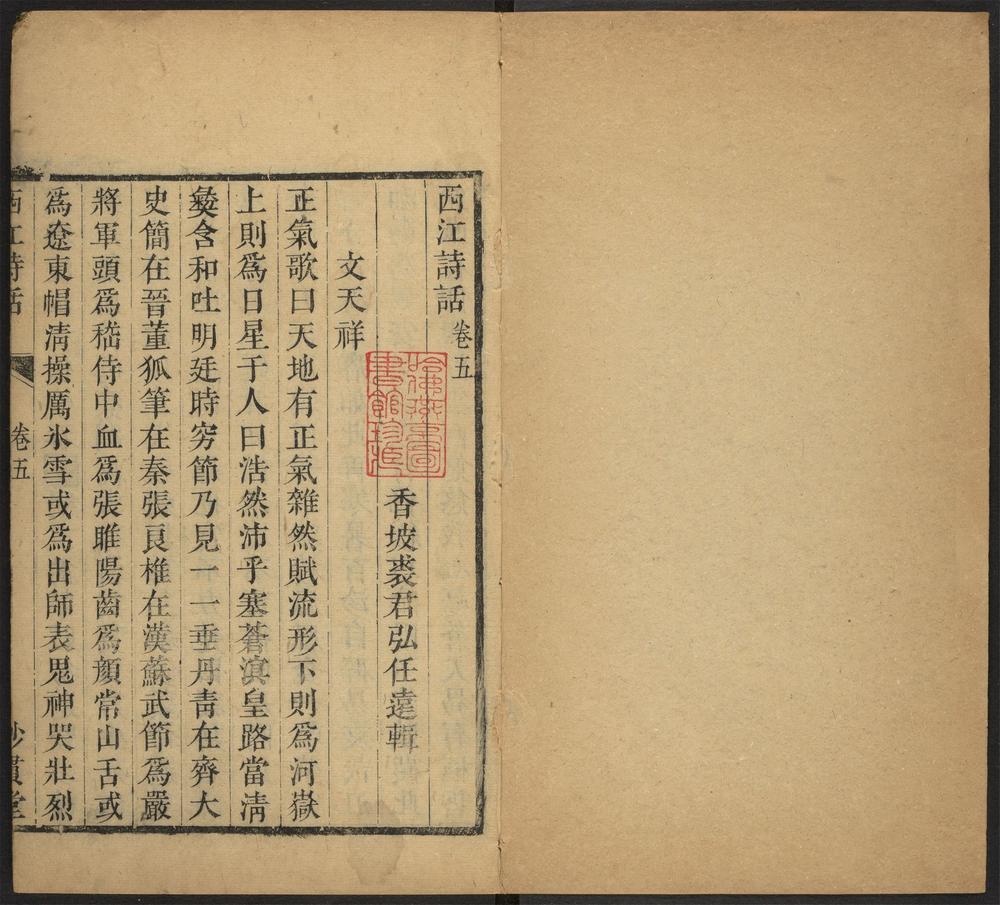 西江詩話 卷五
香坡裘君弘任遠輯
哈佛燕京圖
書館珍藏
文天祥
正氣歌曰天地有正氣雜然賦流形下則爲河嶽
上則爲日星于人曰浩然沛乎塞蒼溟皇路當清
彝含和吐明廷時穷節乃見一一垂丹青在齊大
史簡在晉董狐筆在秦張良椎在漢蘇武節爲嚴
將軍頭爲嵇侍中血爲張睢陽齒爲顏常山舌或
爲遼東帽清操厲氷雪或爲出師表鬼神哭壯烈
西江詩話 卷五 妙貫堂